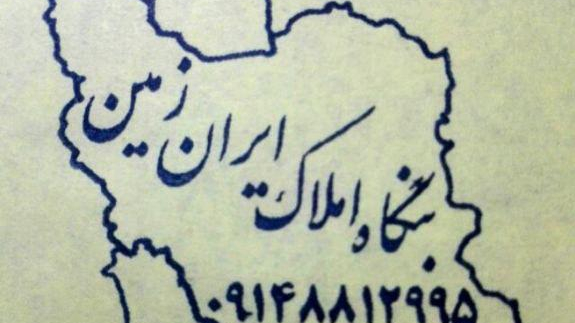 بنگاه املاک ایران زمین
۰۹۱۴۸۸۱۲۹۹۵